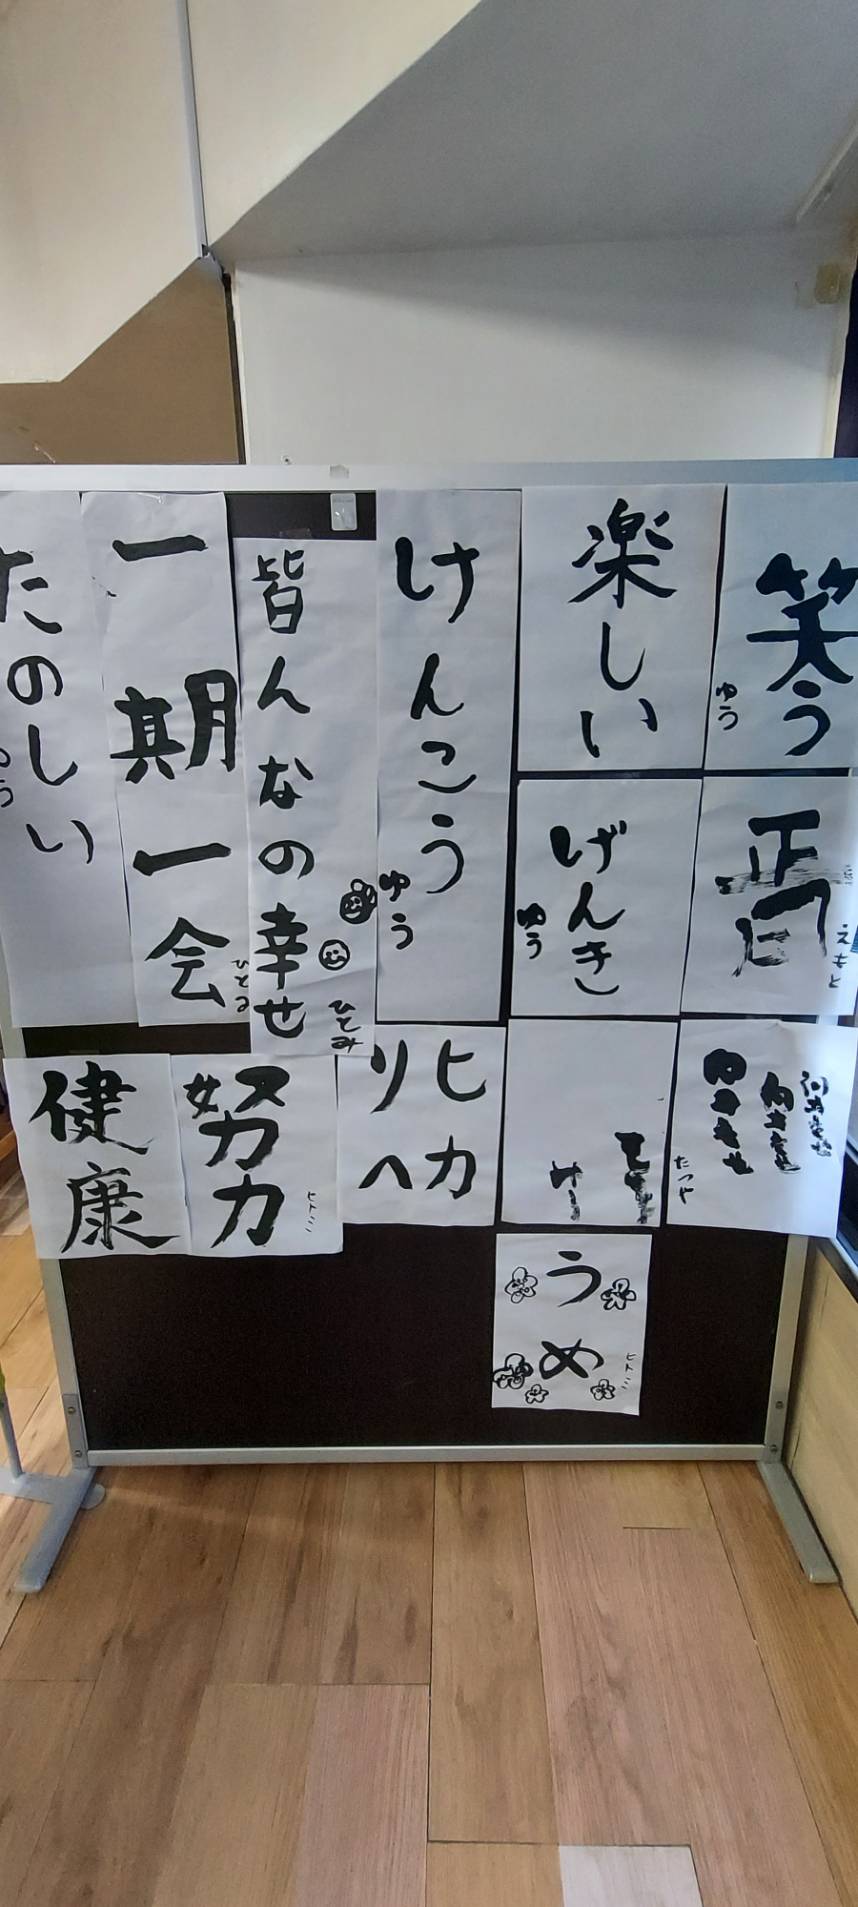 笑う
ゆう
楽しい
けんこう
ゆう
皆んなの幸せ
ひとみ
一期一会
たのしい
えもと
げんき
ゆう
たつや
ヒカ
リへ
努力
ヒトミ
健康
うめ
ヒトミ